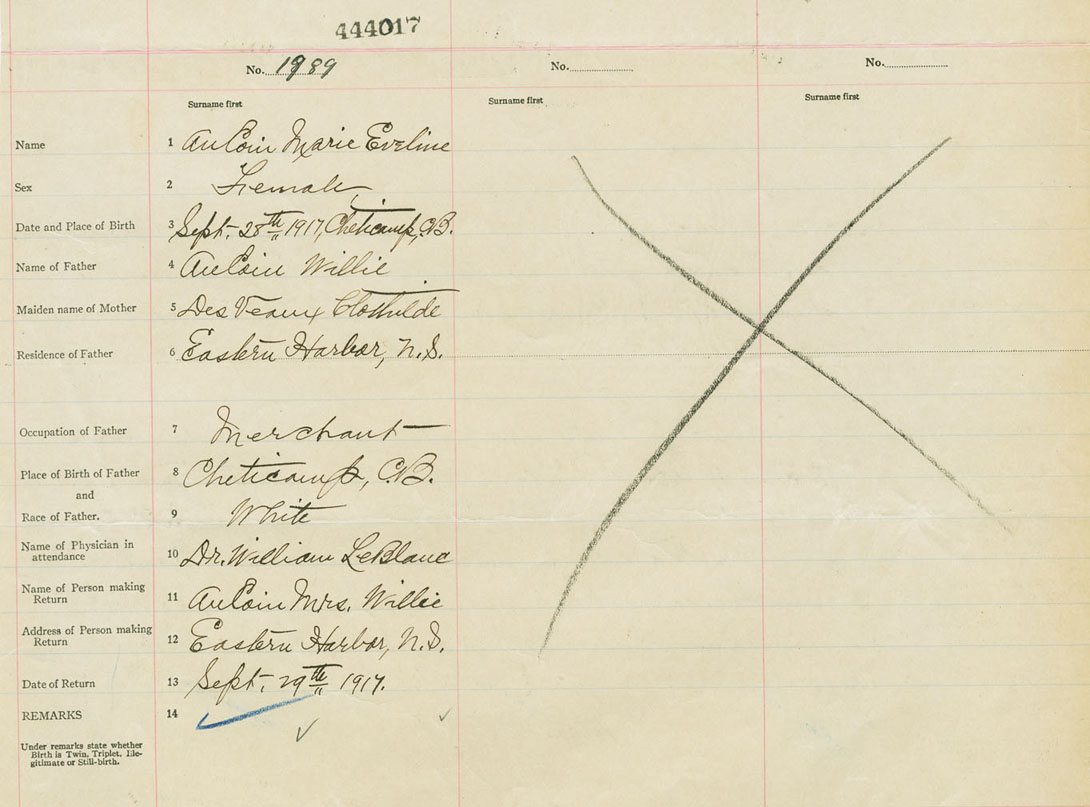 444017
No. 1989 No. No.
Surname first Surname first Surname first
Name 1 AuCoin Marie Eveline
Sex 2 Female
Date and Place of Birth 3 Sept. 28th 1917, Cheticamp, C.B.
Name of Father 4 AuCoin Willie
Maiden name of Mother 5 DesVeaux Clothilde
Residence of Father 6 Eastern Harbor, N.S.
Occupation of Father 7 Merchant
Place of Birth of Father 8 Cheticamp, C.B.
and
Race of Father. 9 White
Name of Physician in
attendance 10 Dr. William LeBlanc
Name of Person making
Return 11 AuCoin Mrs. Willie
Address of Person making
Return 12 Eastern Harbor, N.S.
Date of Return 13 Sept. 29th 1917.
REMARKS 14
Under remarks state whether
Birth is Twin, Triplet, Ille-
gitimate or Still-birth.